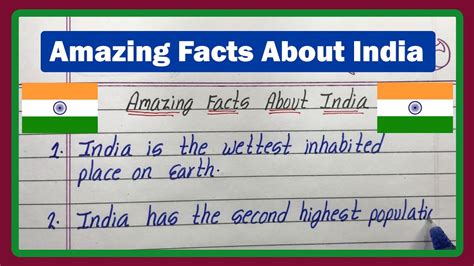 Amazing Facts About India
Amazing Facts About India
1. India is the wettest inhabited
place on Earth.
2. India has the second highest populatic